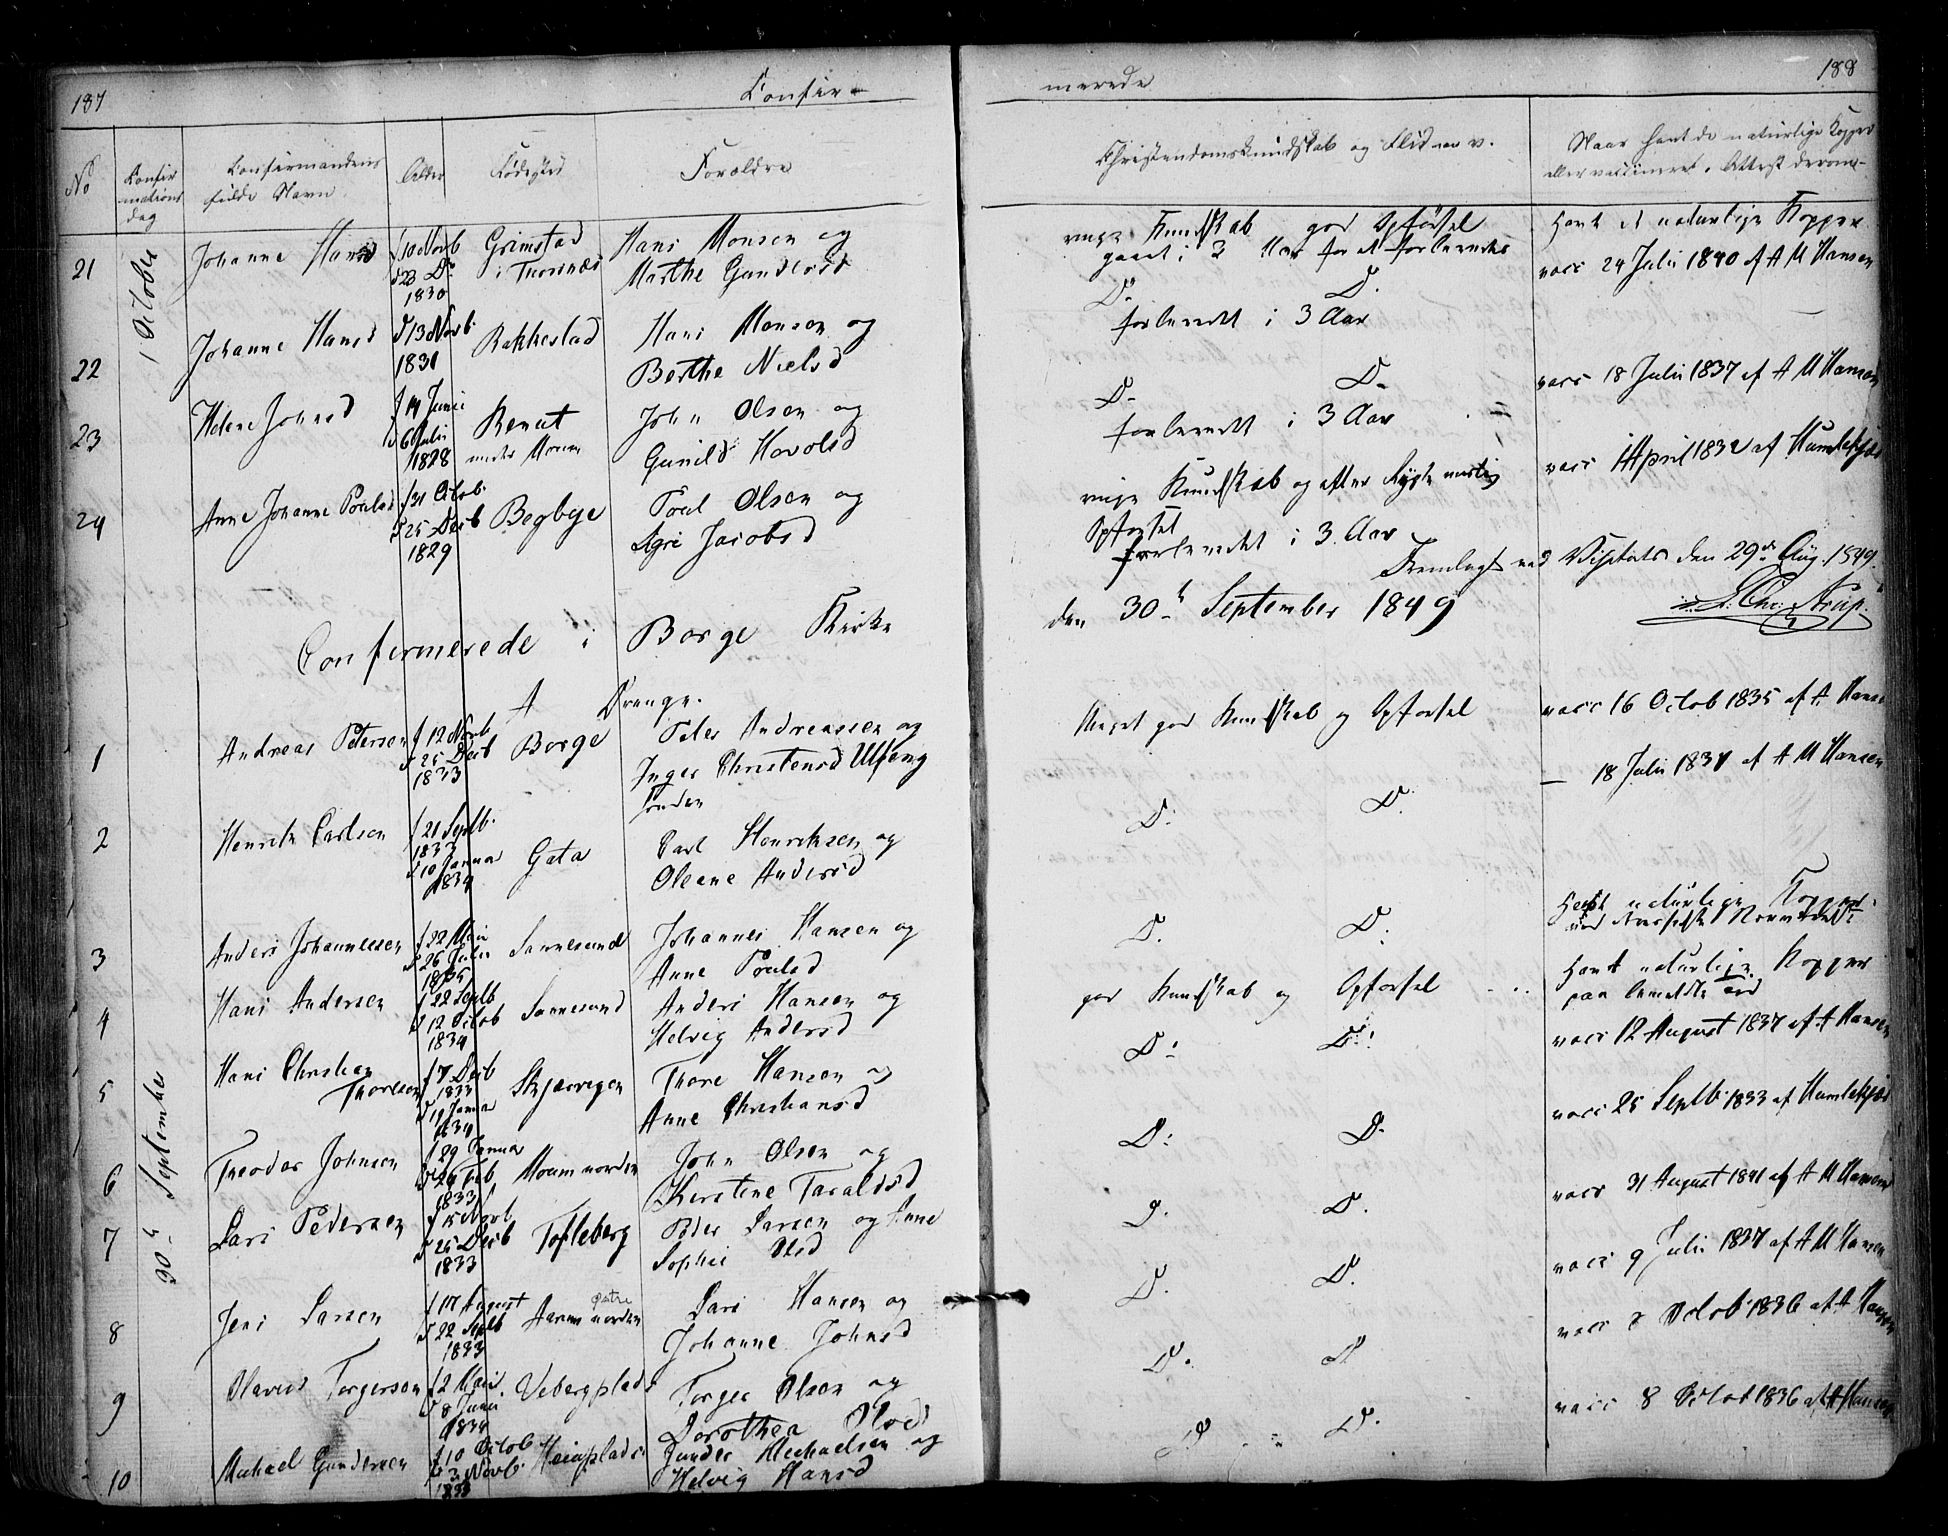 187
Confir-
No
Confir
mations
dag
Confirmandens
fulde Navn
Alder
Fødested
Forældre
1 October
21
Johanne Hansd
f 10 Novb
d 23 D
1830
Grimstad
i Thorsnæs
Hans Monsen og
Marthe Gundersd
22
Johanne Hansd
d 13 Novb
1831
Rakkestad
Hans Monsen og
Berthe Nielsd
23
Helene Johnsd
f 14 Junii
d 6 Julii
1828
John Olsen og
Gunild Havolsd
24
Anne Johanne Poulsd
f 31 Octob
d 25 Decb
1829
Begbye
Poul Olsen og
Agri Jacobsd
Confirmerede i Borge Kirke
A Drenge.
30 September
1
Andreas Petersen
f 12 Novb
d 25 Decb
1833
Borge
Peter Andreassen og
Inger Christensd Ulfeng
sønden
2
Henrik Carlsen
f 21 Septb.
1833
d 10 Januar
1834
Gata
Carl Henriksen og
Oleane Andersd
3
Anders Johannesen
f 22 Mai
d 26 Julii
1835
Sannesund
Johannes Hansen og
Anne Poulsd
4
Hans Andersen
f 22 Septb
d 12 Octob
1834
Sannesund
Anders Hansen og
Helvig Andersd
5
Hans Christian
Thoresen
f 7 Decb
1833
d 19 Januar
1834
Skjærvigen
Thore Hansen og
Anne Christiansd
6
Theodor Johnsen
f 29 Januar
d 24 Feb
1833
Moum norden
John Olsen og
Kerstine Taraldsd
7
Lars Pedersen
f 15 Novb.
d 25 Decb
1833
Tofteberg
Peder Larsen og Anne
Sophie Olsd
8
Jens Larsen
f 17 August
d 22 Septb
1833
østre
Aarum norden
Lars Hansen og
Johanne Johnsd
9
Olavus Torgersen
f 2 Mai
d 8 Junii
1834
Vebergplads
Torger Olsen og
Dorothea Olsd
10
Michael Gundersen
f 10 Octob
d 3 Novb.
1833
Heieplads
Gunder Michaelsen og
Helvig Hansd
188
merede
Christendomskundskab og Flid m. v.
Naar havt de naturlige Kopper
eller vaccineret, Attest derom
ringe Kundskab god Opførsel
gaaet i 3 Aar for at forberedes
Havt de naturlige Kopper
D. D.
forberedt i 3 Aar
vacc 24 Julii 1840 af A M Hansen
D. D.
forberedt i 3 Aar
vacc 18 Julii 1837 af A M Hansen
ringe Kundskab og efter Rygte
Opførsel
forberedt i 3 Aar
vacc 1 April 1832 af Humlekjær
Fremlagt ved Visitats den 29de Aug. 1849.
den 30 September 1849
Meget god Kundskab og Opførsel
vacc 16 Octob 1835 af A. Hansen
D: D.
— 18 Julii 1837 af A M Hansen
D. D.
Havt naturlige Kopper
god Kundskab og Opførsel
Havt naturlige Kopper
D: D:
vacc 12 August 1837 af A Hansen
D: D.
vacc 25 Septb: 1833 af Humlekjær
D. D.
vacc 31 August 1841 af A M Hansen
D. D.
vacc 9 Julii 1837 af A M Hansen
D. D
vacc 8 Octob 1836 af A Hansen
D. D.
vacc 8 Octob 1836 af A Hansen